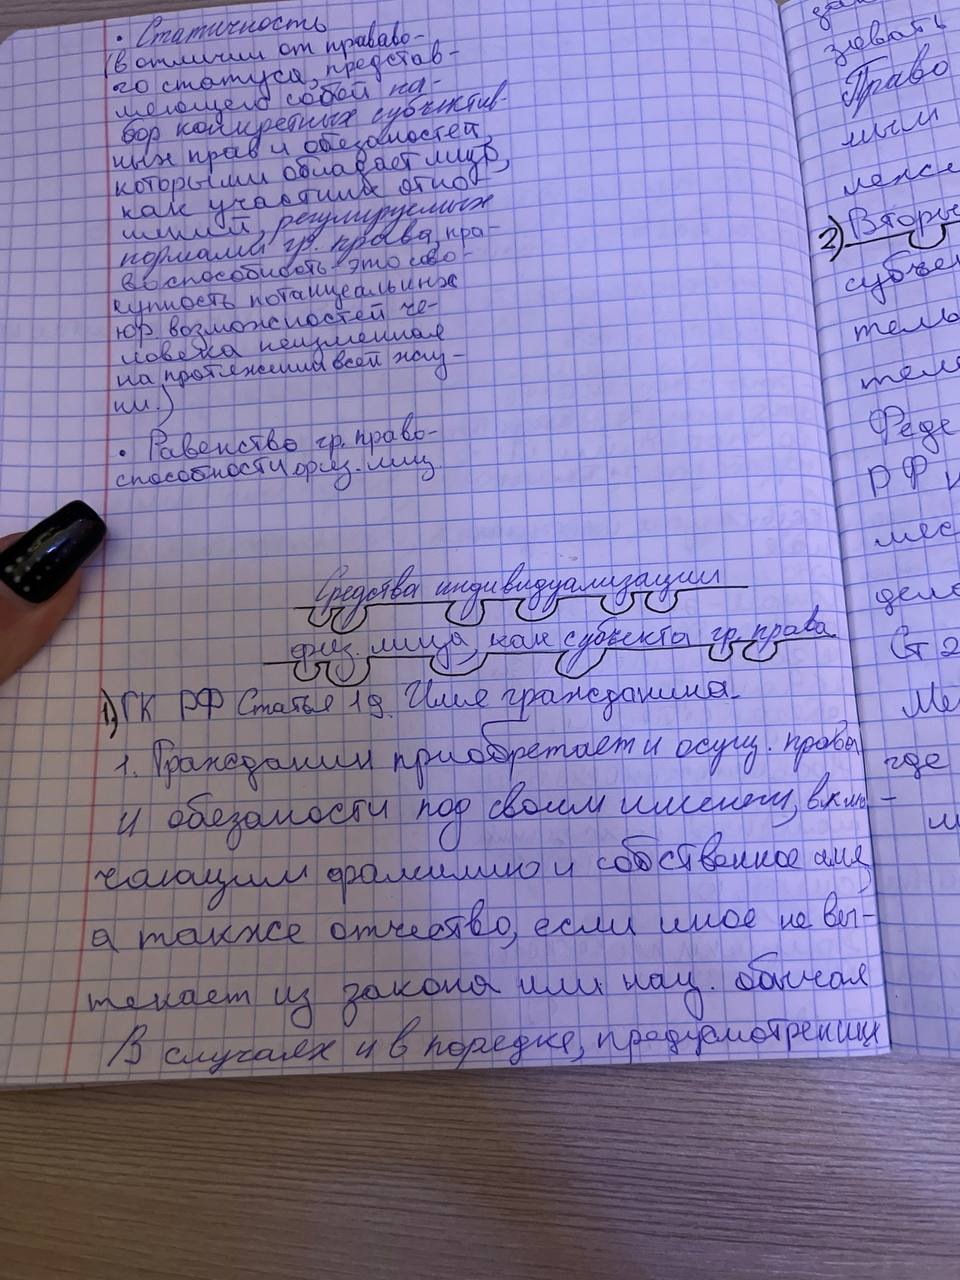 • Статичность
(в отличии от прававо-
го статуса, представ-
ляющего собой на-
бор конкретных субъектив-
ных прав и обезаностей,
которыми облавает лицо,
как участник отно-
шений, регулируемых
нормами гр. права, пра-
воспособность - это сово-
купность потанцеальных
юр возможностей че-
ловека неизменная
на протяжении всей жиз-
ни.)
• Равенство гр. право-
способности физ. лиц
Средства индивидуализации
физ. лица, как субъекта гр. права
1) ГК РФ Статья 19. Имя гражданина.
1. Гражданин приобретает и осущ. права
и обезаности под своим именем, вклю-
чающим фамилию и собственное имя,
а также отчество, если иное не вы-
текает из закона или нац. обычая
В случаях и в порядке, предусмотренных
зовать
Право
мыми
2) Вторы
субъек
тель
теле
Феде
РФ и
мес
дело
Ст 2
Ме
где